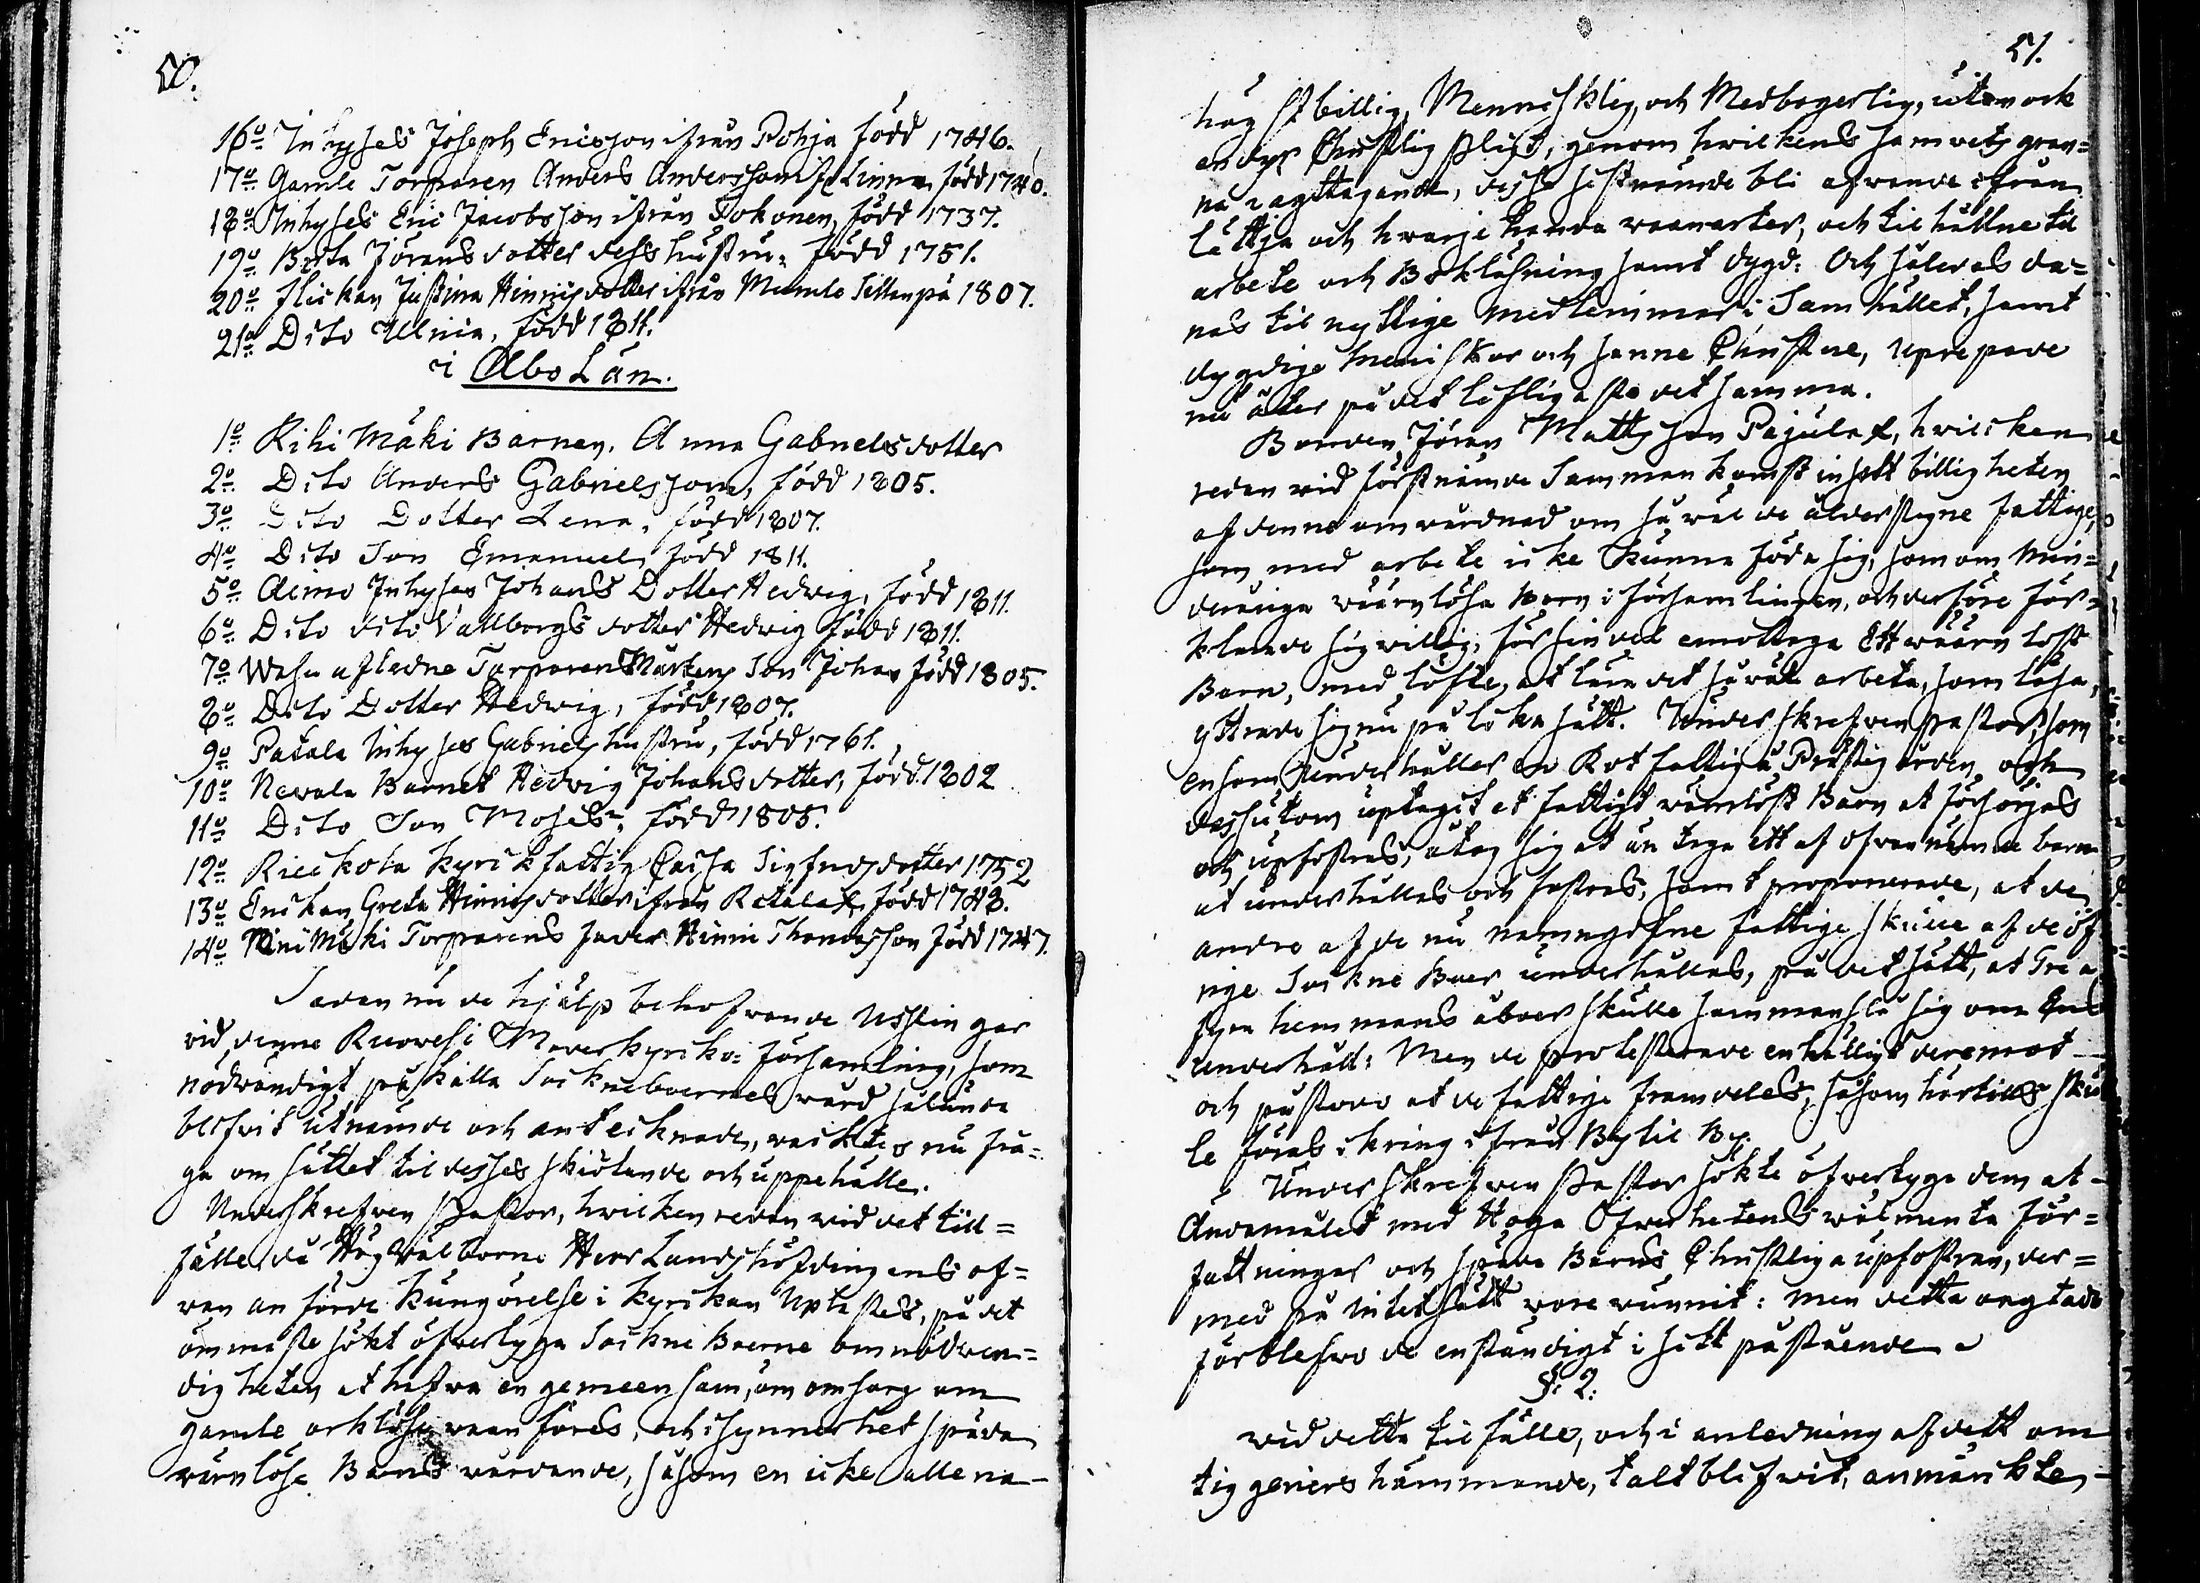 50.
16o Inhyses Joseph Ericsson ifrån Pohja född 1746.
17o Gamle Torparen Anders Andersson fr Linna född 1740.
18o Inhyses Eric Jacobsson ifrån Tokonen, född 1737.
19o Brita Jöransdotter dess hustru, född 1751.
20o flickan Justina Hinricsdotter ifrån Mamlo Sillanpä 1807.
21o Dito Ulrica, född 1811.
i Åbo Län.
1o Rihi Mäki Barnen, Anna Gabrielsdotter
2o Dito Anders Gabrielsson, född 1805.
3o Dito Dotter Lena, född 1807.
4o Dito Son Emanuel, född 1811.
5o Aimo Inhyses Johans Dotter Hedwig, född 1811.
6o Dito dito Vallborgs dotter Hedwig född 1811.
7o Wahu afledne Torparen Mårtens Son Johan född 1805.
8o Dito Dotter Hedwig, född 1807.
9o Patala Inhyses Gabriels hustru, född 1761.
10o Nevala Barnet Hedwig Johansdotter, född 1802
11o Dito Son Moses, född 1805.
12o Rieckola Kyrckfattig Caisa Sigfridsdotter 1752
13o Enckan Greta Hinricsdotter ifrån Retala, född 1743.
14o Rini Mäki Torparens fader Hinric Thomasson född 1747.
Sedan nu de hjälp behofwande Usslingar
vid denne Ruowesi Moderkyrko-Församling, som
nödwändigt påkalla Socknebornes wård sålunda
blifwit utnämde och antecknade, wäcktes nu frå=
ga om sättet til desses skötande och uppehälle.
Underskrefwen Pastor, hwilken redan wid det till=
fälle, då Högwälborne Herr Landshöfdingens of=
wan anförde Kungörelse i Kyrckan Uplästes, på det
ömmaste sökt öfwertyga Sockne Boerne om nödwen=
digheten at hafwa en gemensam, öm omsorg om
gamle orklösa wanföres, och i synnerhet späda
wärnlösa Barns wårdande, såsom en icke allena
51.
högst billig, Mennisklig, och Medborgerlig, utan ock
en dyr Christlig pligt, genom hwilkens samwets gran=
na iagttagande, desse sistnämde bli afwande ifrån
lättja och hwarjehanda wanarter, och tilhållne til
arbete och Bokläsning samt dygd: Och således da=
nas til nyttige medlemmar i Samhället, samt
dygdige meniskor och sanne Christne, uprepade
nu åter på det lifligaste det samma.
Bonden Jöran Mattsson Pajula, hwilcken
redan wid förstnämde Sammankomst insett billigheten
af denne omwårdnad om så wäl de ålderstigne fattige,
som med arbete icke kunna föda sig, som om min=
deråriga wärnlösa barn i församlingen, och derföre för=
klarade sig willig, för sin del emottaga Ett wärnlöst
Barn, med löfte at lära det så wäl arbeta, som läsa,
yttrade sig nu på lika sätt. Underskrefwen Pastor, som
ensam underhåller en Rotfattig å Prästegården, och
dessutom uptagit et fattigt wärnlöst Barn at försörjas
och upfostras, åtog sig at än taga ett af ofwannämde barn
at underhållas och fostras, samt proponerade, at de
andre af de nu namngifne fattige skulle af de öf
rige Sockne Boer underhållas, på det sätt, at Tre a
fyra hemmans åboer skulle sammanslå sig om Ens
underhåll: Men de protesterade enhälligt deremot
och påstodo at de fattige framdeles, såsom härtills skul
le föras ikring ifrån By til By.
Underskrefwen Pastor sökte öfwertyga dem at
Ändamålet med Höga Öfwerhetens wälmenta För=
fattningar och späda Barns Christliga upfostran, der=
med på intet sätt wore wunnit: men detta oagtadt
förblefwo de enständigt i sitt påstående.
§. 2.
wid detta tilfälle, och i anledning af dett om
tiggeriers hämmande, talt blifwit, anmärkte